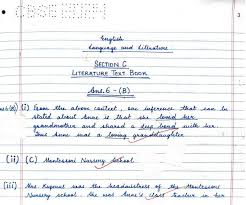 CBSE
3
English
Language and Literature
SECTION C
LITERATURE TEXT BOOK
Ans.6-(B)
(i) From the above context, one inference that can be
stated about Anne is that she loved her
grandmother and shared a deep bond with her
Thus Anne was a loving granddaughter
(ii) (C) Montessori Nursery School
(iii) Mrs. Kuperus was the headmistress of the Montessori
Nursery school. She was Anne's class teacher in her